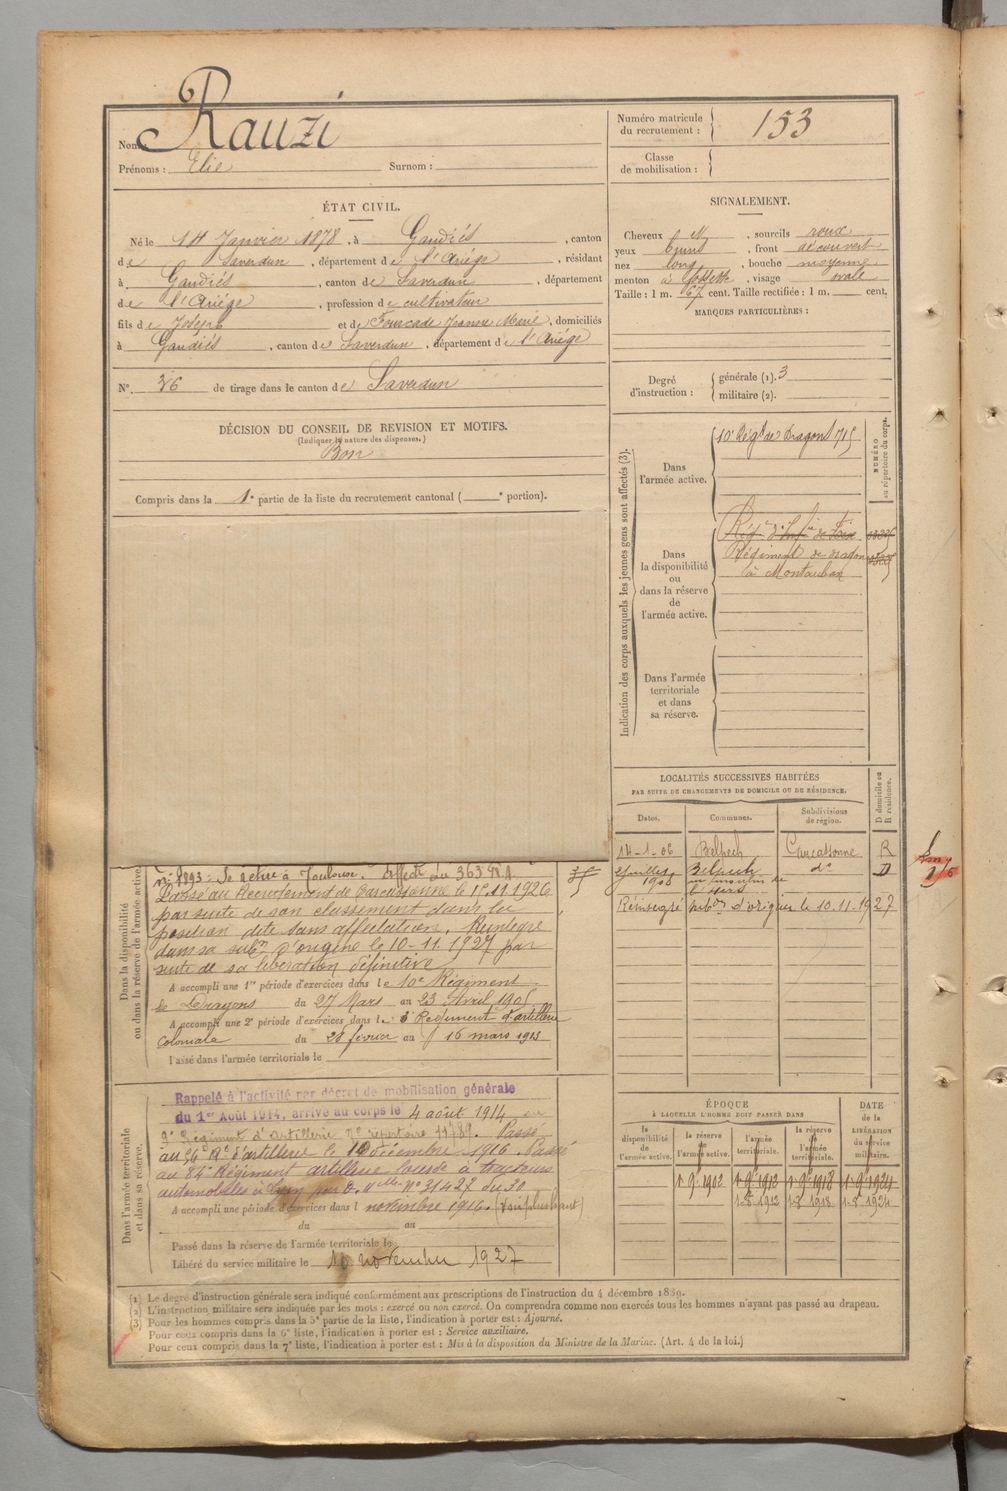 Nom Rauzi
Prénoms : Elie Surnom :
Numéro matricule du recrutement : 153
Classe de mobilisation :
ÉTAT CIVIL.
Né le 14 Janvier 1878, à Gaudiés, canton
de Saverdun, département de l'Ariége, résidant
à Gaudiés, canton de Saverdun, département
de l'Ariége, profession de cultivateur
fils de Joseph et de Fourcade Jeanne Marie, domiciliés
à Gaudiés, canton de Saverdun, département de l'Ariége
N° 36 de tirage dans le canton de Saverdun
DÉCISION DU CONSEIL DE REVISION ET MOTIFS.
(Indiquer la nature des dispenses.)
Bon
Compris dans la 1e partie de la liste du recrutement cantonal ( e portion).
SIGNALEMENT.
Cheveux , sourcils roux
yeux bruns, front découvert
nez long, bouche moyenne
menton à fossette, visage ovale
Taille : 1 m. 67 cent. Taille rectifiée : 1 m. cent.
MARQUES PARTICULIÈRES :
Degré d'instruction : générale (1). 3
militaire (2).
Indication des corps auxquels les jeunes gens sont affectés (3).
NUMÉRO au répertoire du corps.
Dans l'armée active.
10e Régt de Dragons 715
Dans la disponibilité ou dans la réserve de l'armée active.
Régt d'Infie de Foix
Régiment de dragons
à Montauban
Dans l'armée territoriale et dans sa réserve.
LOCALITÉS SUCCESSIVES HABITÉES
PAR SUITE DE CHANGEMENTS DE DOMICILE OU DE RÉSIDENCE.
D domicile ou R résidence.
Dates. Communes. Subdivisions de région.
14-1-06 Belpech Carcassonne R
juillet 1906 Belpech do D
Réintégré subon d'origine le 10-11-1927
Dans la disponibilité ou dans la réserve de l'armée active.
Se retire à Toulouse. Affecté au 363e R.A.
Passé au Recrutement de Carcassonne le 1er 11 1926
par suite de son classement dans la
position dite sans affectation. Réintégré
dans sa subon d'origine le 10-11 1927 par
suite de sa libération définitive
A accompli une 1re période d'exercices dans le 10e Régiment
de Dragons du 27 Mars au 23 Avril 1905
A accompli une 2e période d'exercices dans le Régiment d'artillerie
coloniale du 28 février au 16 mars 1913
Passé dans l'armée territoriale le
Dans l'armée territoriale et dans sa réserve.
Rappelé à l'activité par décret de mobilisation générale
du 1er Août 1914, arrivé au corps le 4 août 1914, au
Régiment d'Artillerie No répertoire 11789. Passé
au 56e Rt d'artillerie le 10 décembre 1916. Passé
au 84e Régiment artillerie lourde à tracteurs
automobiles No 31427 du 30
A accompli une période d'exercices dans l novembre 1916. (voir plus haut)
du au
Passé dans la réserve de l'armée territoriale le
Libéré du service militaire le 10 novembre 1927
ÉPOQUE
À LAQUELLE L'HOMME DOIT PASSER DANS
DATE de la LIBÉRATION du service militaire.
la disponibilité de l'armée active. la réserve de l'armée active. l'armée territoriale. la réserve de l'armée territoriale.
1 9e 1902 1 9e 1912 1 9e 1918 1 9e 1924
1-8 1912 1-8 1918 1-8 1924
(1) Le degré d'instruction générale sera indiqué conformément aux prescriptions de l'instruction du 4 décembre 1889.
(2) L'instruction militaire sera indiquée par les mots : exercé ou non exercé. On comprendra comme non exercés tous les hommes n'ayant pas passé au drapeau.
(3) Pour les hommes compris dans la 5e partie de la liste, l'indication à porter est : Ajourné.
Pour ceux compris dans la 6e liste, l'indication à porter est : Service auxiliaire.
Pour ceux compris dans la 7e liste, l'indication à porter est : Mis à la disposition du Ministre de la Marine. (Art. 4 de la loi.)